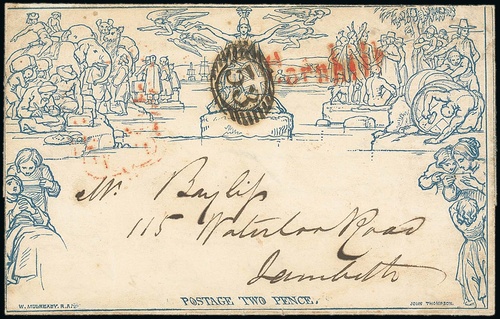 Cornhill
Mr. Baylis
115 Waterloo Road
Lambeth
POSTAGE TWO PENCE.
W. MULREADY. R.A.
JOHN THOMPSON.